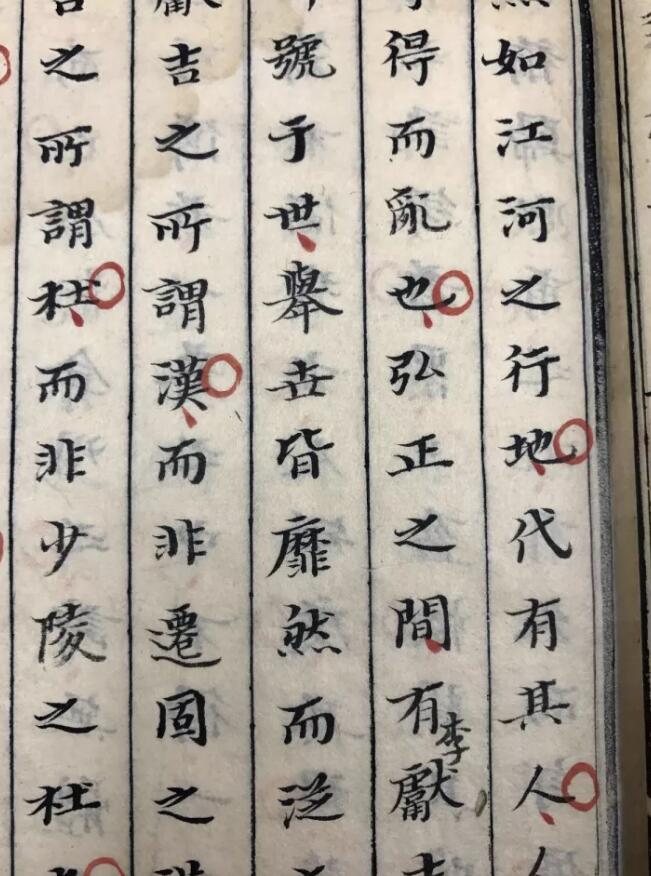 然如江河之行地代有其人
得而亂也弘正之間有李獻吉
號于世舉世皆靡然而從
獻吉之所謂漢而非遷固之漢
吉之所謂杜而非少陵之杜